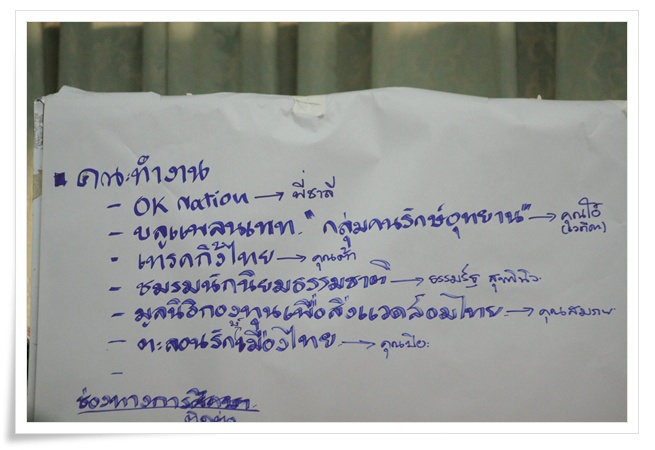 ▪ คณะทำงาน
- OK Nation → พี่ชาลี
- บลูแพลนเนท "กลุ่มคนรักษ์อุทยาน" → คุณโอ๋
- เทรคกิ้งไทย → คุณต้า
- ชมรมนักนิยมธรรมชาติ → ธรรมรัฐ
- มูลนิธิกองทุนเพื่อสิ่งแวดล้อมไทย →
- ตะลอนรักษ์เมืองไทย → คุณป๊อะ
-
ช่องทางการ